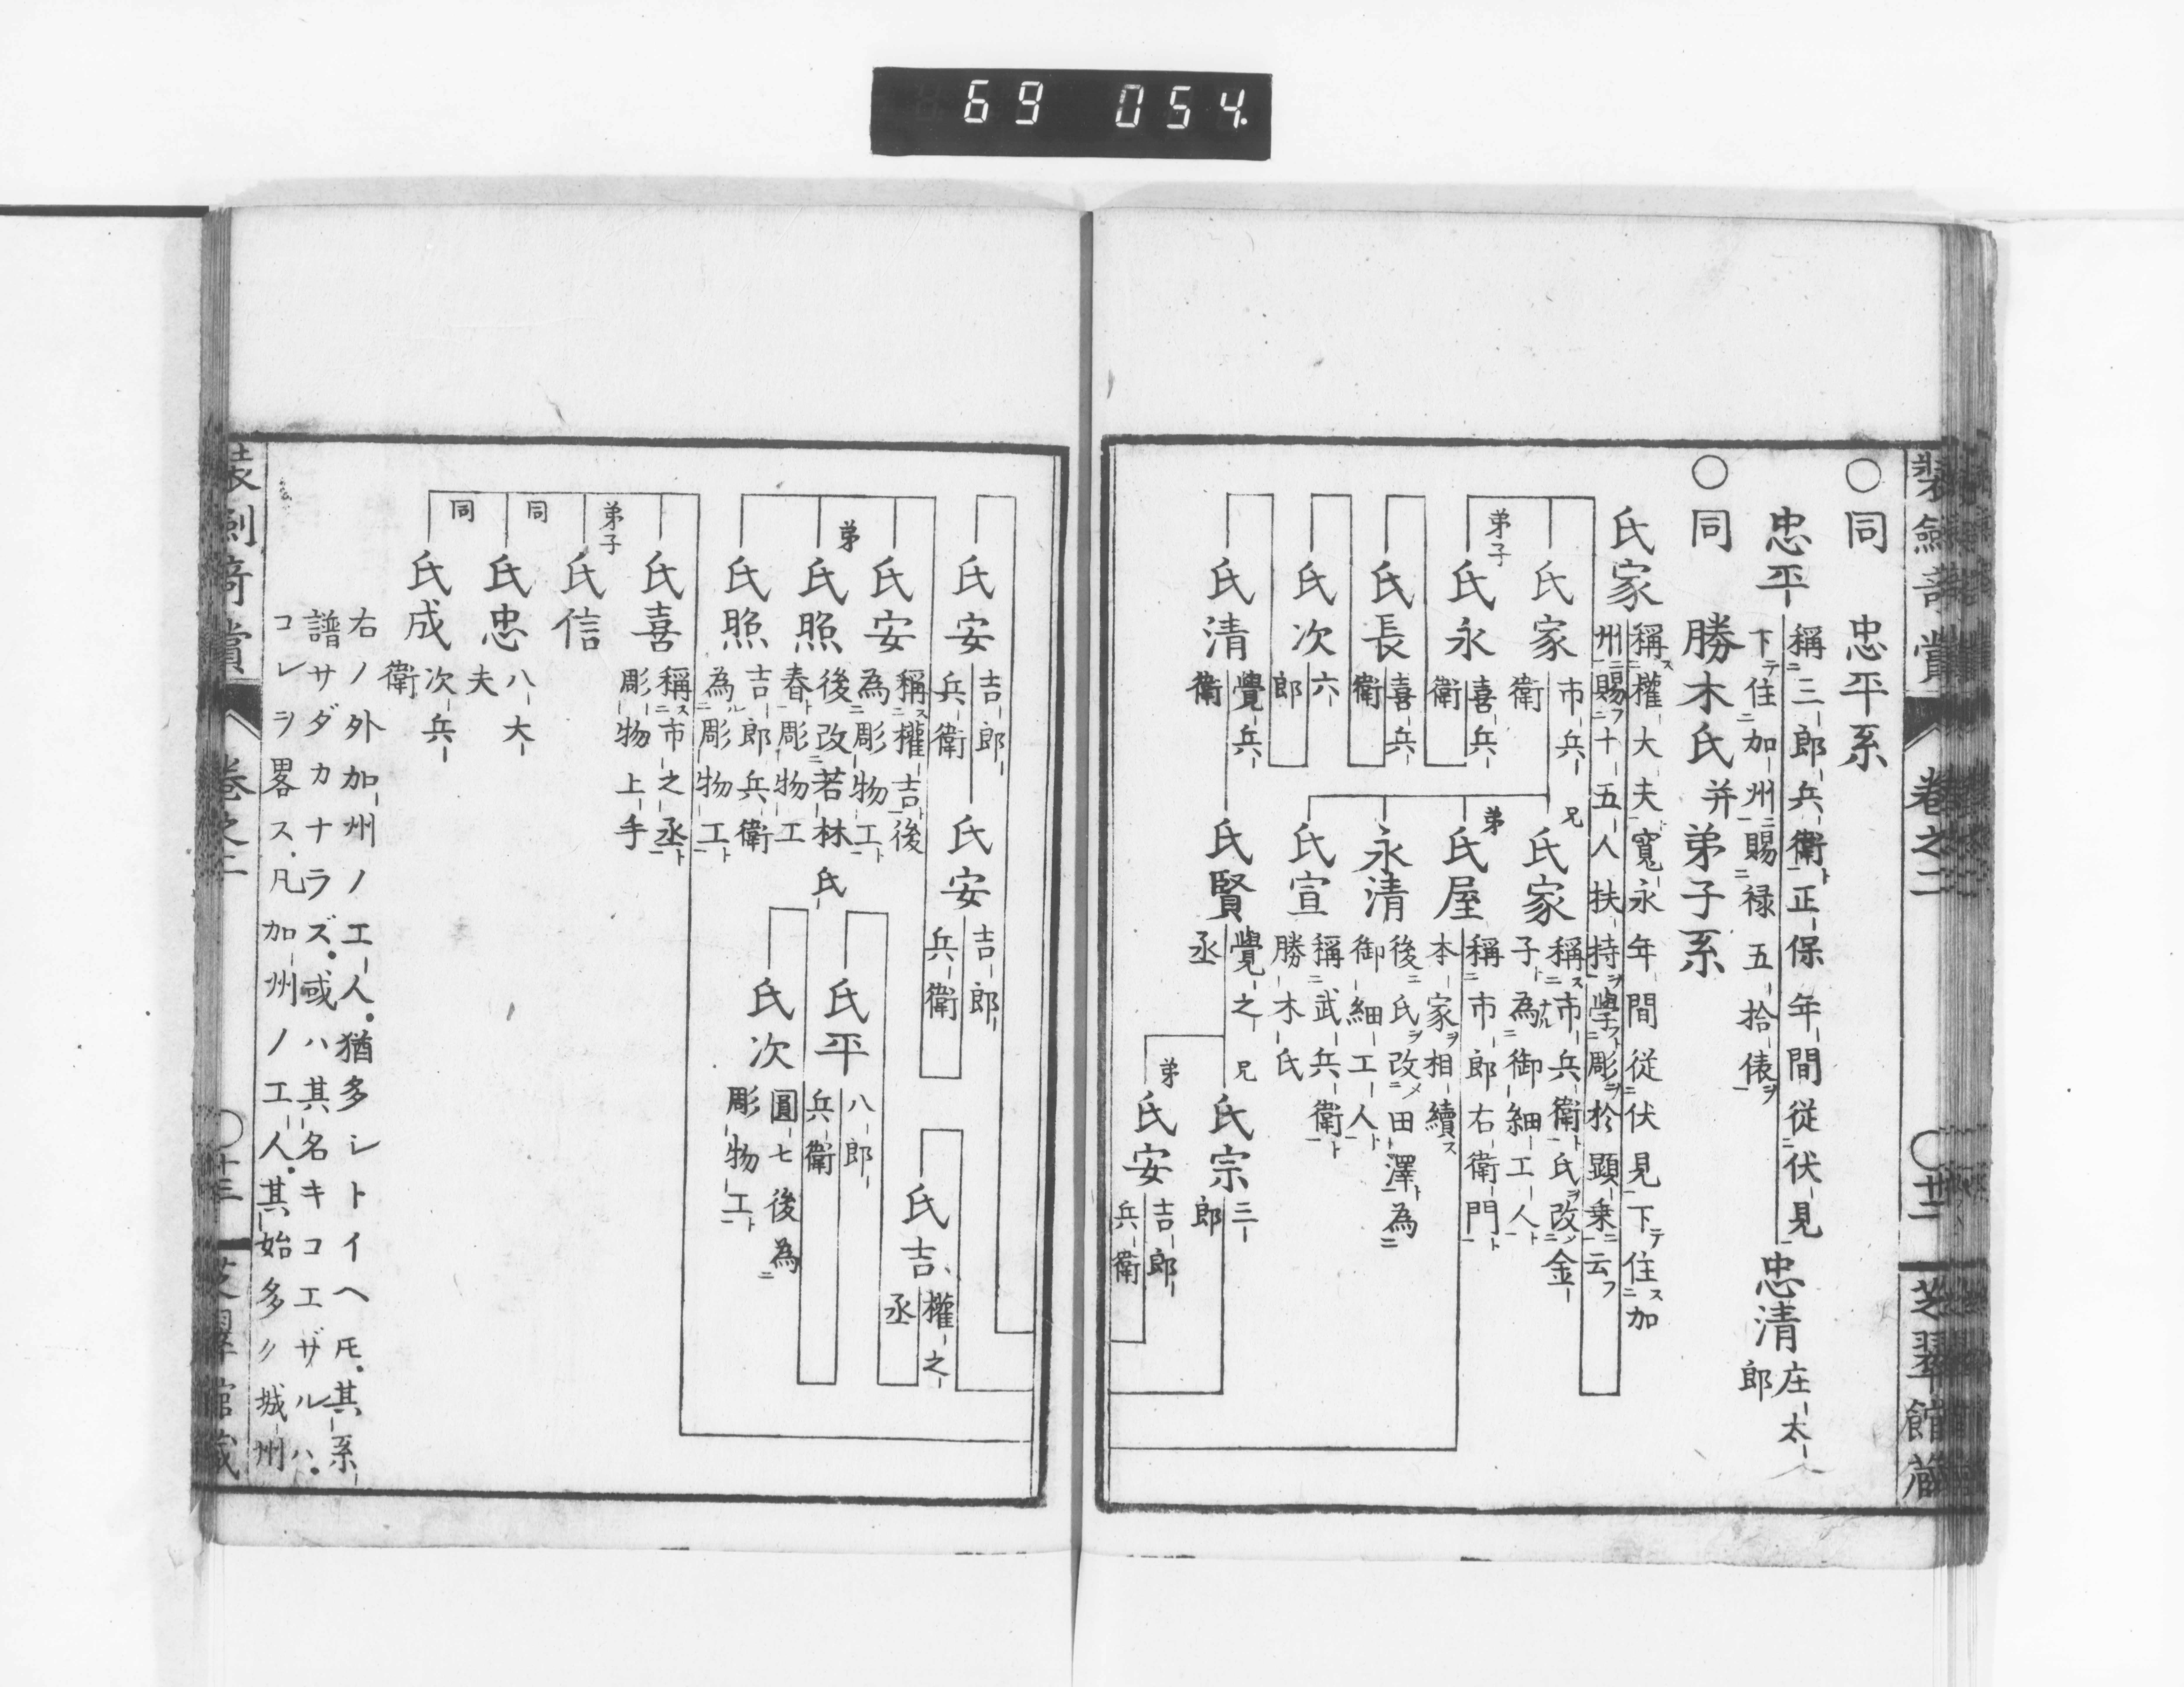 69 054
裝劍奇賞 卷之二 ○廿二 芝翠館藏
○同 忠平系
忠平 稱三郎兵衛正保年間従伏見
下テ住加州賜禄五拾俵ヲ
忠清 庄太
郎
○同 勝木氏并弟子系
氏家 稱權大夫寛永年間従伏見下テ住ス加
州賜フ十五人扶持ヲ學フ彫ヲ於顕乗云フ
氏家 市兵
衛
兄
氏家 稱ス市兵衛ト氏ヲ改メ金
子ト為ル御細工人ト
弟
氏屋 稱市郎右衛門ト
本家ヲ相續ス
永清 後氏ヲ改メ田澤ト為
御細工人ト
氏宣 稱武兵衛ト
勝木氏
弟子
氏永 喜兵
衛
氏長 喜兵
衛
氏次 六
郎
氏清 覺兵
衛
氏賢 覺之
丞
兄
氏宗 三
郎
弟
氏安 吉郎
兵衛
氏安 吉郎
兵衛
氏安 吉郎
兵衛
氏吉 權之
丞
氏安 稱ス權吉ト後
為彫物工ト
弟
氏照 後改若林氏
春ト彫物工
氏平 八郎
兵衛
氏次 圓七後為
彫物工ト
氏照 吉郎兵衛
為ル彫物工ト
氏喜 稱ス市之丞ト
彫物上手
弟子
氏信
同
氏忠 八大
夫
同
氏成 次兵
衛
右ノ外加州ノ工人猶多シトイヘ𪜈其系
譜サダカナラズ或ハ其名キコエザルハ
コレヲ畧ス凡加州ノ工人其始多ク城州
卷之二 芝翠館藏